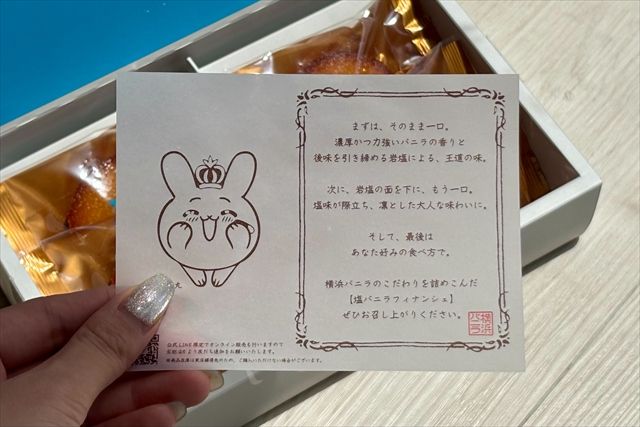 まずは、そのまま一口。
濃厚かつ力強いバニラの香りと
後味を引き締める岩塩による、王道の味。
次に、岩塩の面を下に、もう一口。
塩味が際立ち、凛とした大人な味わいに。
そして、最後は
あなた好みの食べ方で。
横浜バニラのこだわりを詰めこんだ
【塩バニラフィナンシェ】
ぜひお召し上がりください。
横浜
バニラ
え
公式LINE限定でオンライン販売も行いますので